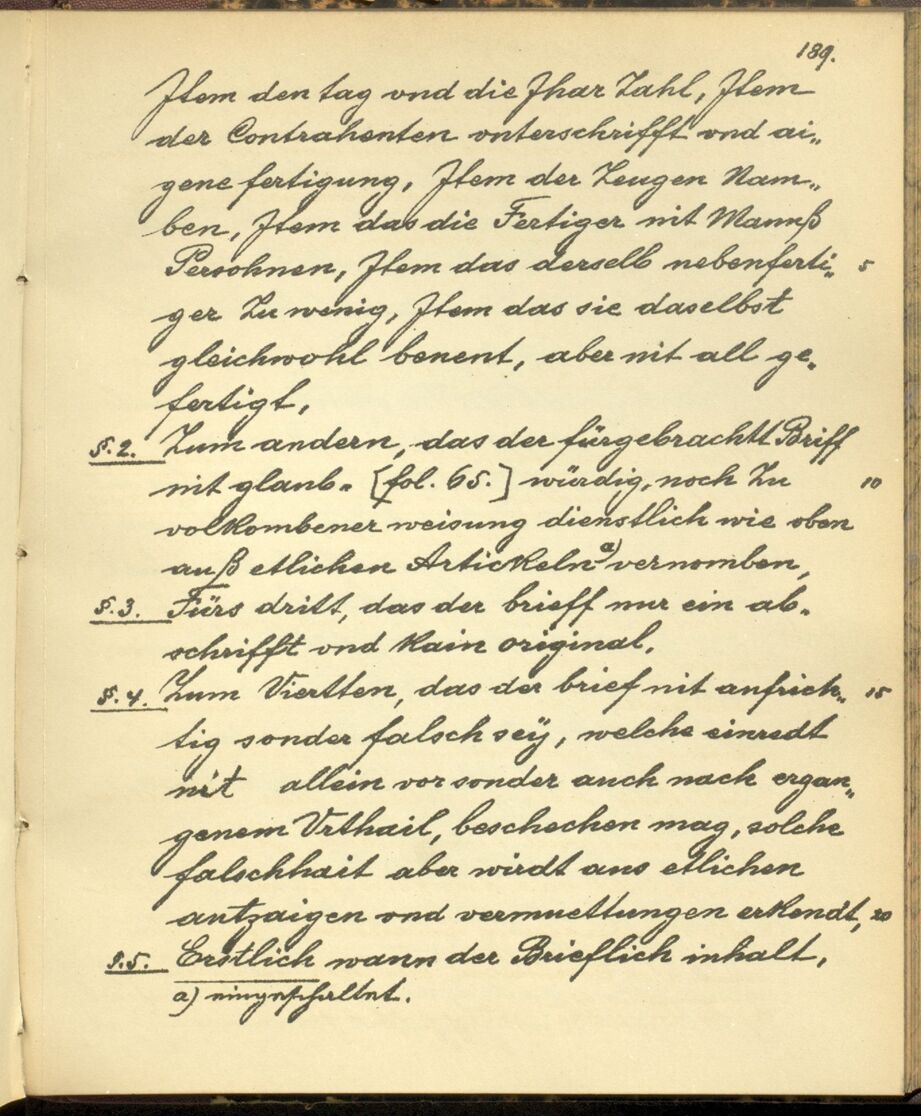 189.
Jtem den tag vnd die Jhar Zahl, Jtem
der Contrahenten vnterschrifft vnd ai„
gene fertigung, Jtem der Zeugen Nam„
ben, Jtem das die Fertiger nit Mannß
Persohnen, Jtem das derselb nebenferti„ 5
ger Zu wenig, Jtem das sie daselbst
gleichwohl benent, aber nit all ge„
fertigt,
§. 2. Zum andern, das der fürgebrachtt Briff
nit glaub„ [fol. 65.] würdig, noch Zu 10
volkombener weisung dienstlich wie oben
auß etlichen Artickeln a) vernomben,
§. 3. Fürs dritt, das der brieff nur ein ab„
schrifft vnd kain original.
§. 4. Zum Viertten, das der brief nit aufrich„ 15
tig sonder falsch seÿ, welche einredt
nit allein vor sonder auch nach ergan„
genem Vrthail, beschechen mag, solche
falschhait aber wirdt aus etlichen
antzaigen vnd vermuettungen erkendt, 20
§. 5. Erstlich wann der Brieflich inhalt,
a) eingeschaltet.